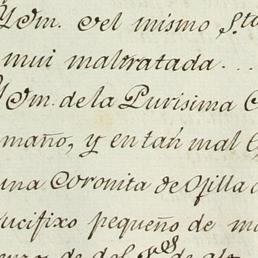 Ym. del mismo Sto
mui maltratada...
Ym. de la Purisima C
maño, y en tan mal E
una Coronita de Ojilla
ucifixo pequeño de ma